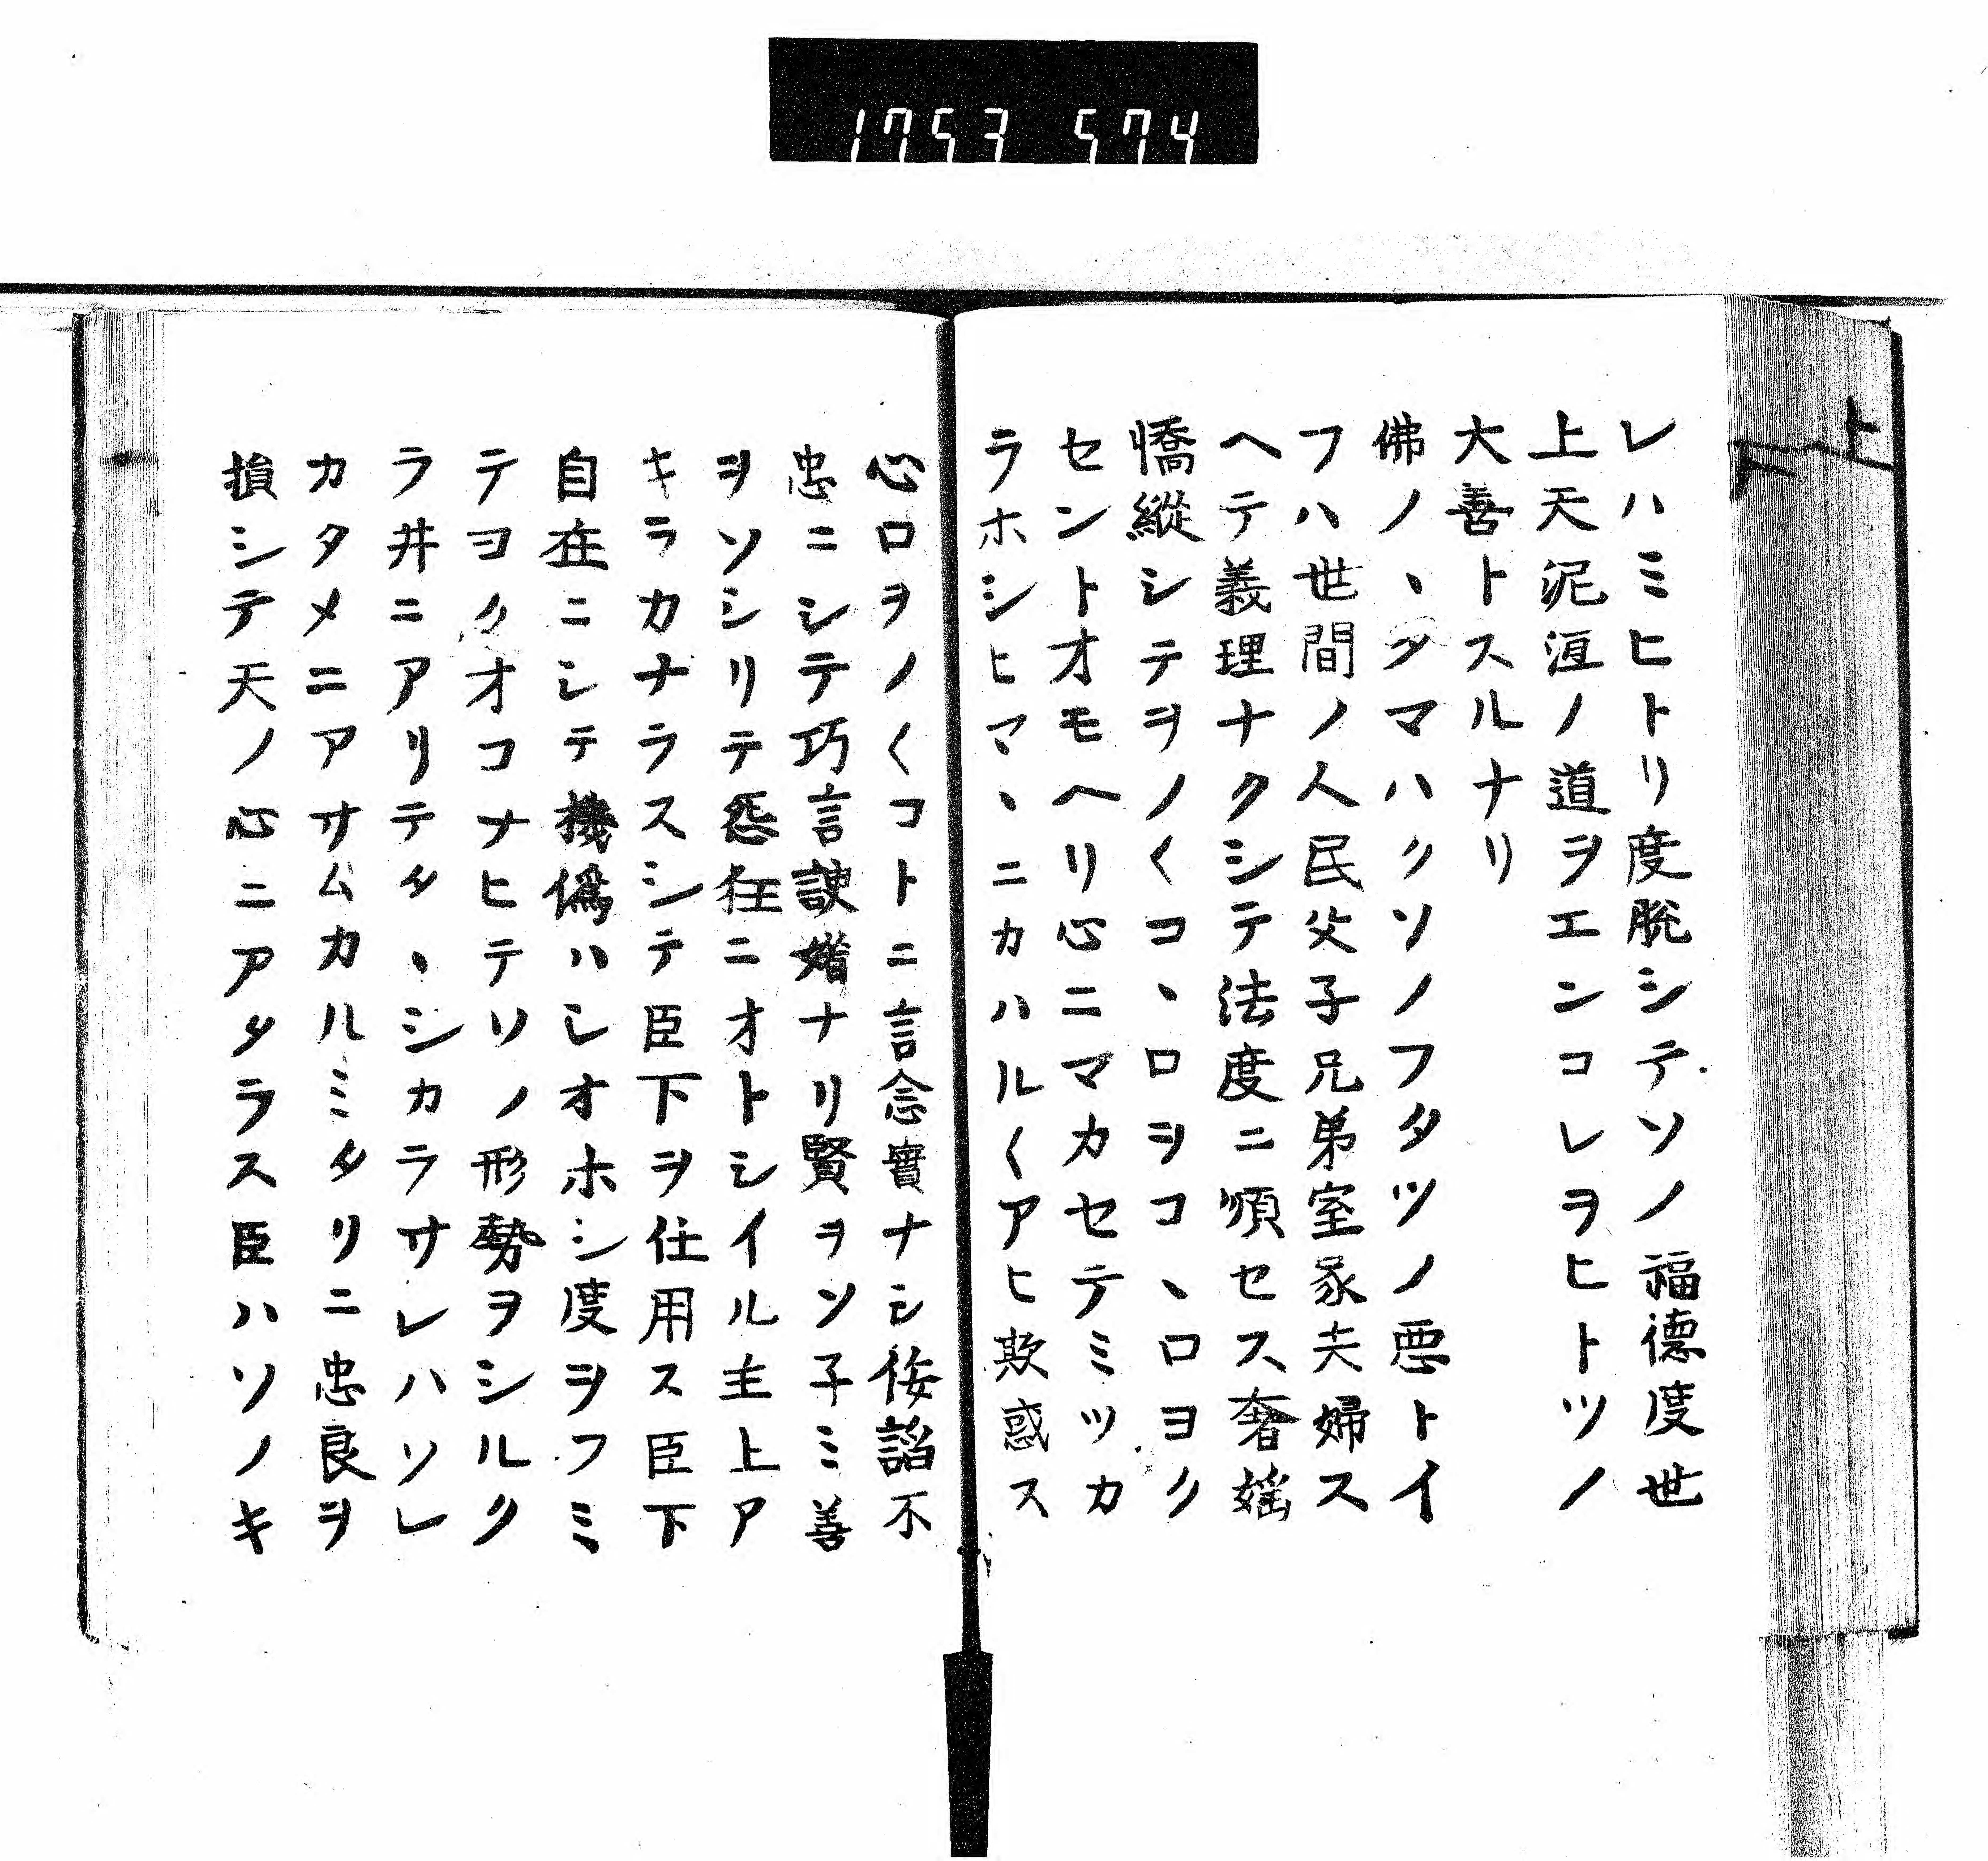 1753 574
上
下
レハミヒトリ度脱シテソノ福德度世
上天泥洹ノ道ヲエンコレヲヒトツノ
大善トスルナリ
佛ノヽタマハクソノフタツノ悪トイ
フハ世間ノ人民父子兄弟室家夫婦ス
ヘテ義理ナクシテ法度ニ順セス奢婬
憍縱シテヲノ〱コヽロヲコヽロヨク
セントオモヘリ心ニマカセテミツカ
ラホシヒマヽニカハル〱アヒ欺惑ス
心ロヲノ〱コトニ言念實ナシ侫諂不
忠ニシテ巧言諛媚ナリ賢ヲソ子ミ善
ヲソシリテ怨枉ニオトシイル主上ア
キラカナラスシテ臣下ヲ任用ス臣下
自在ニシテ機偽ハシオホシ度ヲフミ
テヨクオコナヒテソノ形勢ヲシルク
ラ井ニアリテタヽシカラサレハソレ
カタメニアサムカルミタリニ忠良ヲ
損シテ天ノ心ニアタラス臣ハソノキ